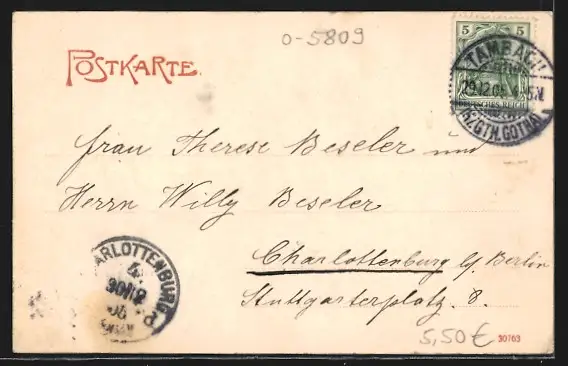 0-5809
POSTKARTE.
5 5
DEUTSCHES REICH
TAMBACH
29.12.05
(HZGTH.GOTHA)
Frau Therese Beseler und
Herrn Willy Beseler
Charlottenburg b/ Berlin
Stuttgarterplatz 8.
CHARLOTTENBURG
5,50€
30763